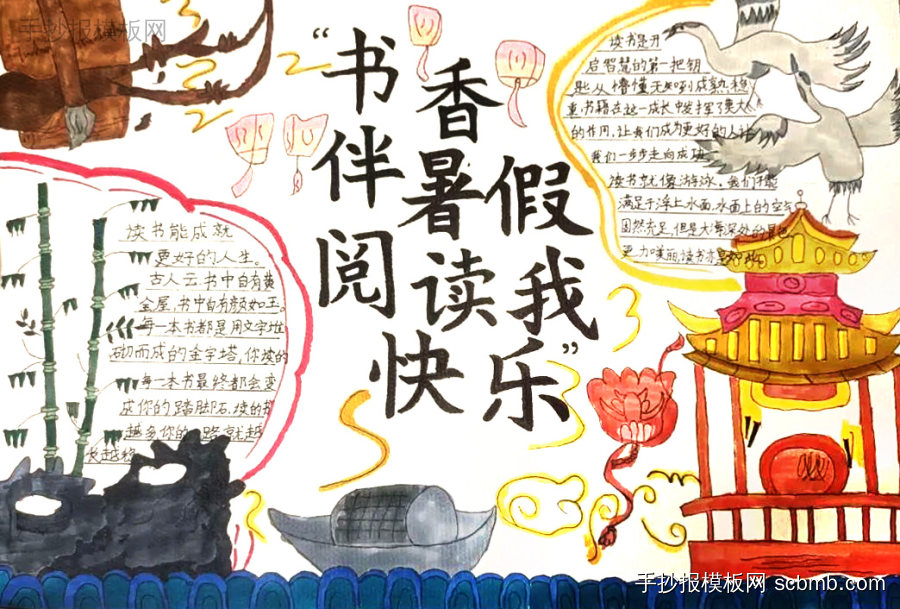 手抄报模板网
“书香
伴暑假
阅读我
快乐”
读书是开
启智慧的第一把钥
匙,从懵懂无知到成熟稳
重,书籍在这一成长中发挥了莫大
的作用,让我们成为更好的人,让
我们一步步走向成功
读书就像游泳,我们不能
满足于浮上水面,水面上的空气
固然充足,但是大海深处的景色
更加美丽,读书亦是如此
读书能成就
更好的人生。
古人云:书中自有黄
金屋,书中自有颜如玉。
每一本书都是用文字堆
砌而成的金字塔,你读的
每一本书最终都会变
成你的踏脚石,读的书
越多你的 路就越
长越稳
手抄报模板网 scbmb.com